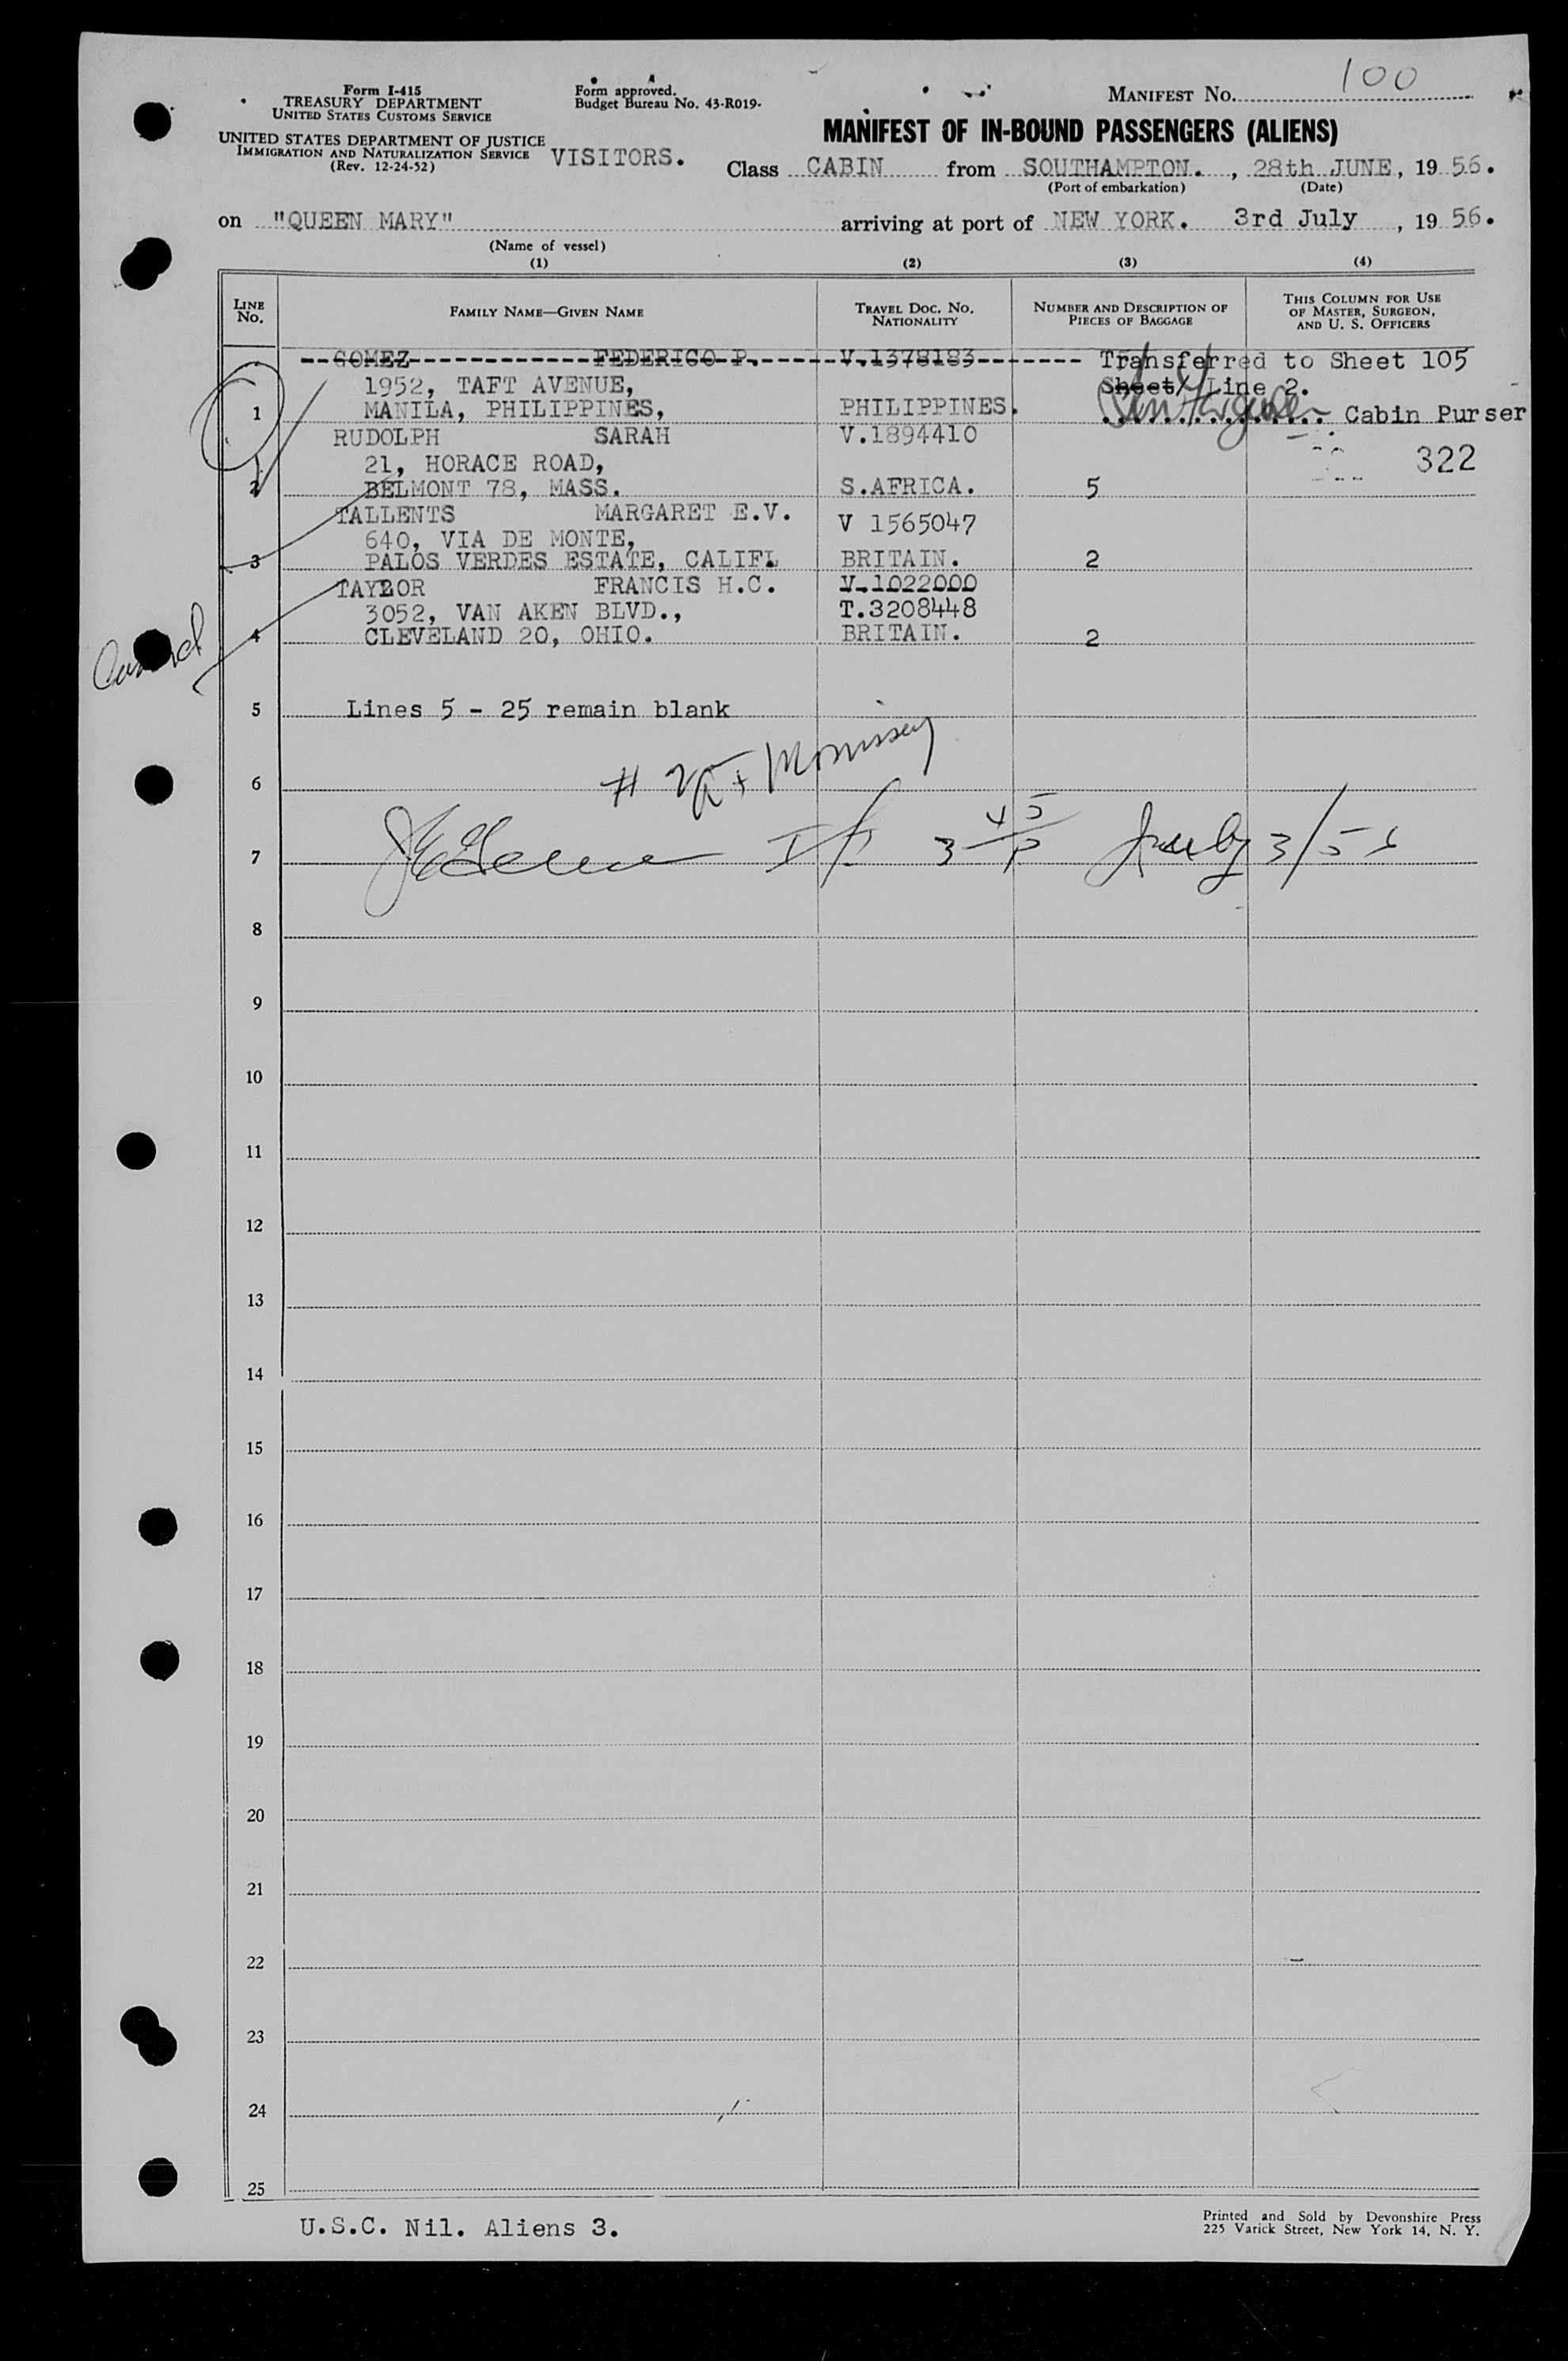 Form I-415
TREASURY DEPARTMENT
UNITED STATES CUSTOMS SERVICE
UNITED STATES DEPARTMENT OF JUSTICE
IMMIGRATION AND NATURALIZATION SERVICE
(Rev. 12-24-52)
Form approved.
Budget Bureau No. 43-R019-
VISITORS.
MANIFEST NO. 100
MANIFEST OF IN-BOUND PASSENGERS (ALIENS)
Class CABIN from SOUTHAMPTON. , 28th JUNE, 19 56.
(Port of embarkation) (Date)
on "QUEEN MARY" arriving at port of NEW YORK. 3rd July , 19 56.
(Name of vessel)
(1) (2) (3) (4)
LINE NO. FAMILY NAME—GIVEN NAME TRAVEL DOC. NO. NATIONALITY NUMBER AND DESCRIPTION OF PIECES OF BAGGAGE THIS COLUMN FOR USE OF MASTER, SURGEON, AND U. S. OFFICERS
GOMEZ FEDERICO P. V.1378183 Transferred to Sheet 105
1952, TAFT AVENUE, Sheet/ Line 2.
1 MANILA, PHILIPPINES, PHILIPPINES. Cabin Purser
RUDOLPH SARAH V.1894410
21, HORACE ROAD, 322
2 BELMONT 78, MASS. S.AFRICA. 5
TALLENTS MARGARET E.V. V 1565047
640, VIA DE MONTE,
3 PALOS VERDES ESTATE, CALIFL BRITAIN. 2
TAYLOR FRANCIS H.C. V.1022000
3052, VAN AKEN BLVD., T.3208448
4 CLEVELAND 20, OHIO. BRITAIN. 2
5 Lines 5 - 25 remain blank
6 Morrissey
7 3 45 July 3/56
8
9
10
11
12
13
14
15
16
17
18
19
20
21
22
23
24
25
U.S.C. Nil. Aliens 3.
Printed and Sold by Devonshire Press
225 Varick Street, New York 14, N. Y.